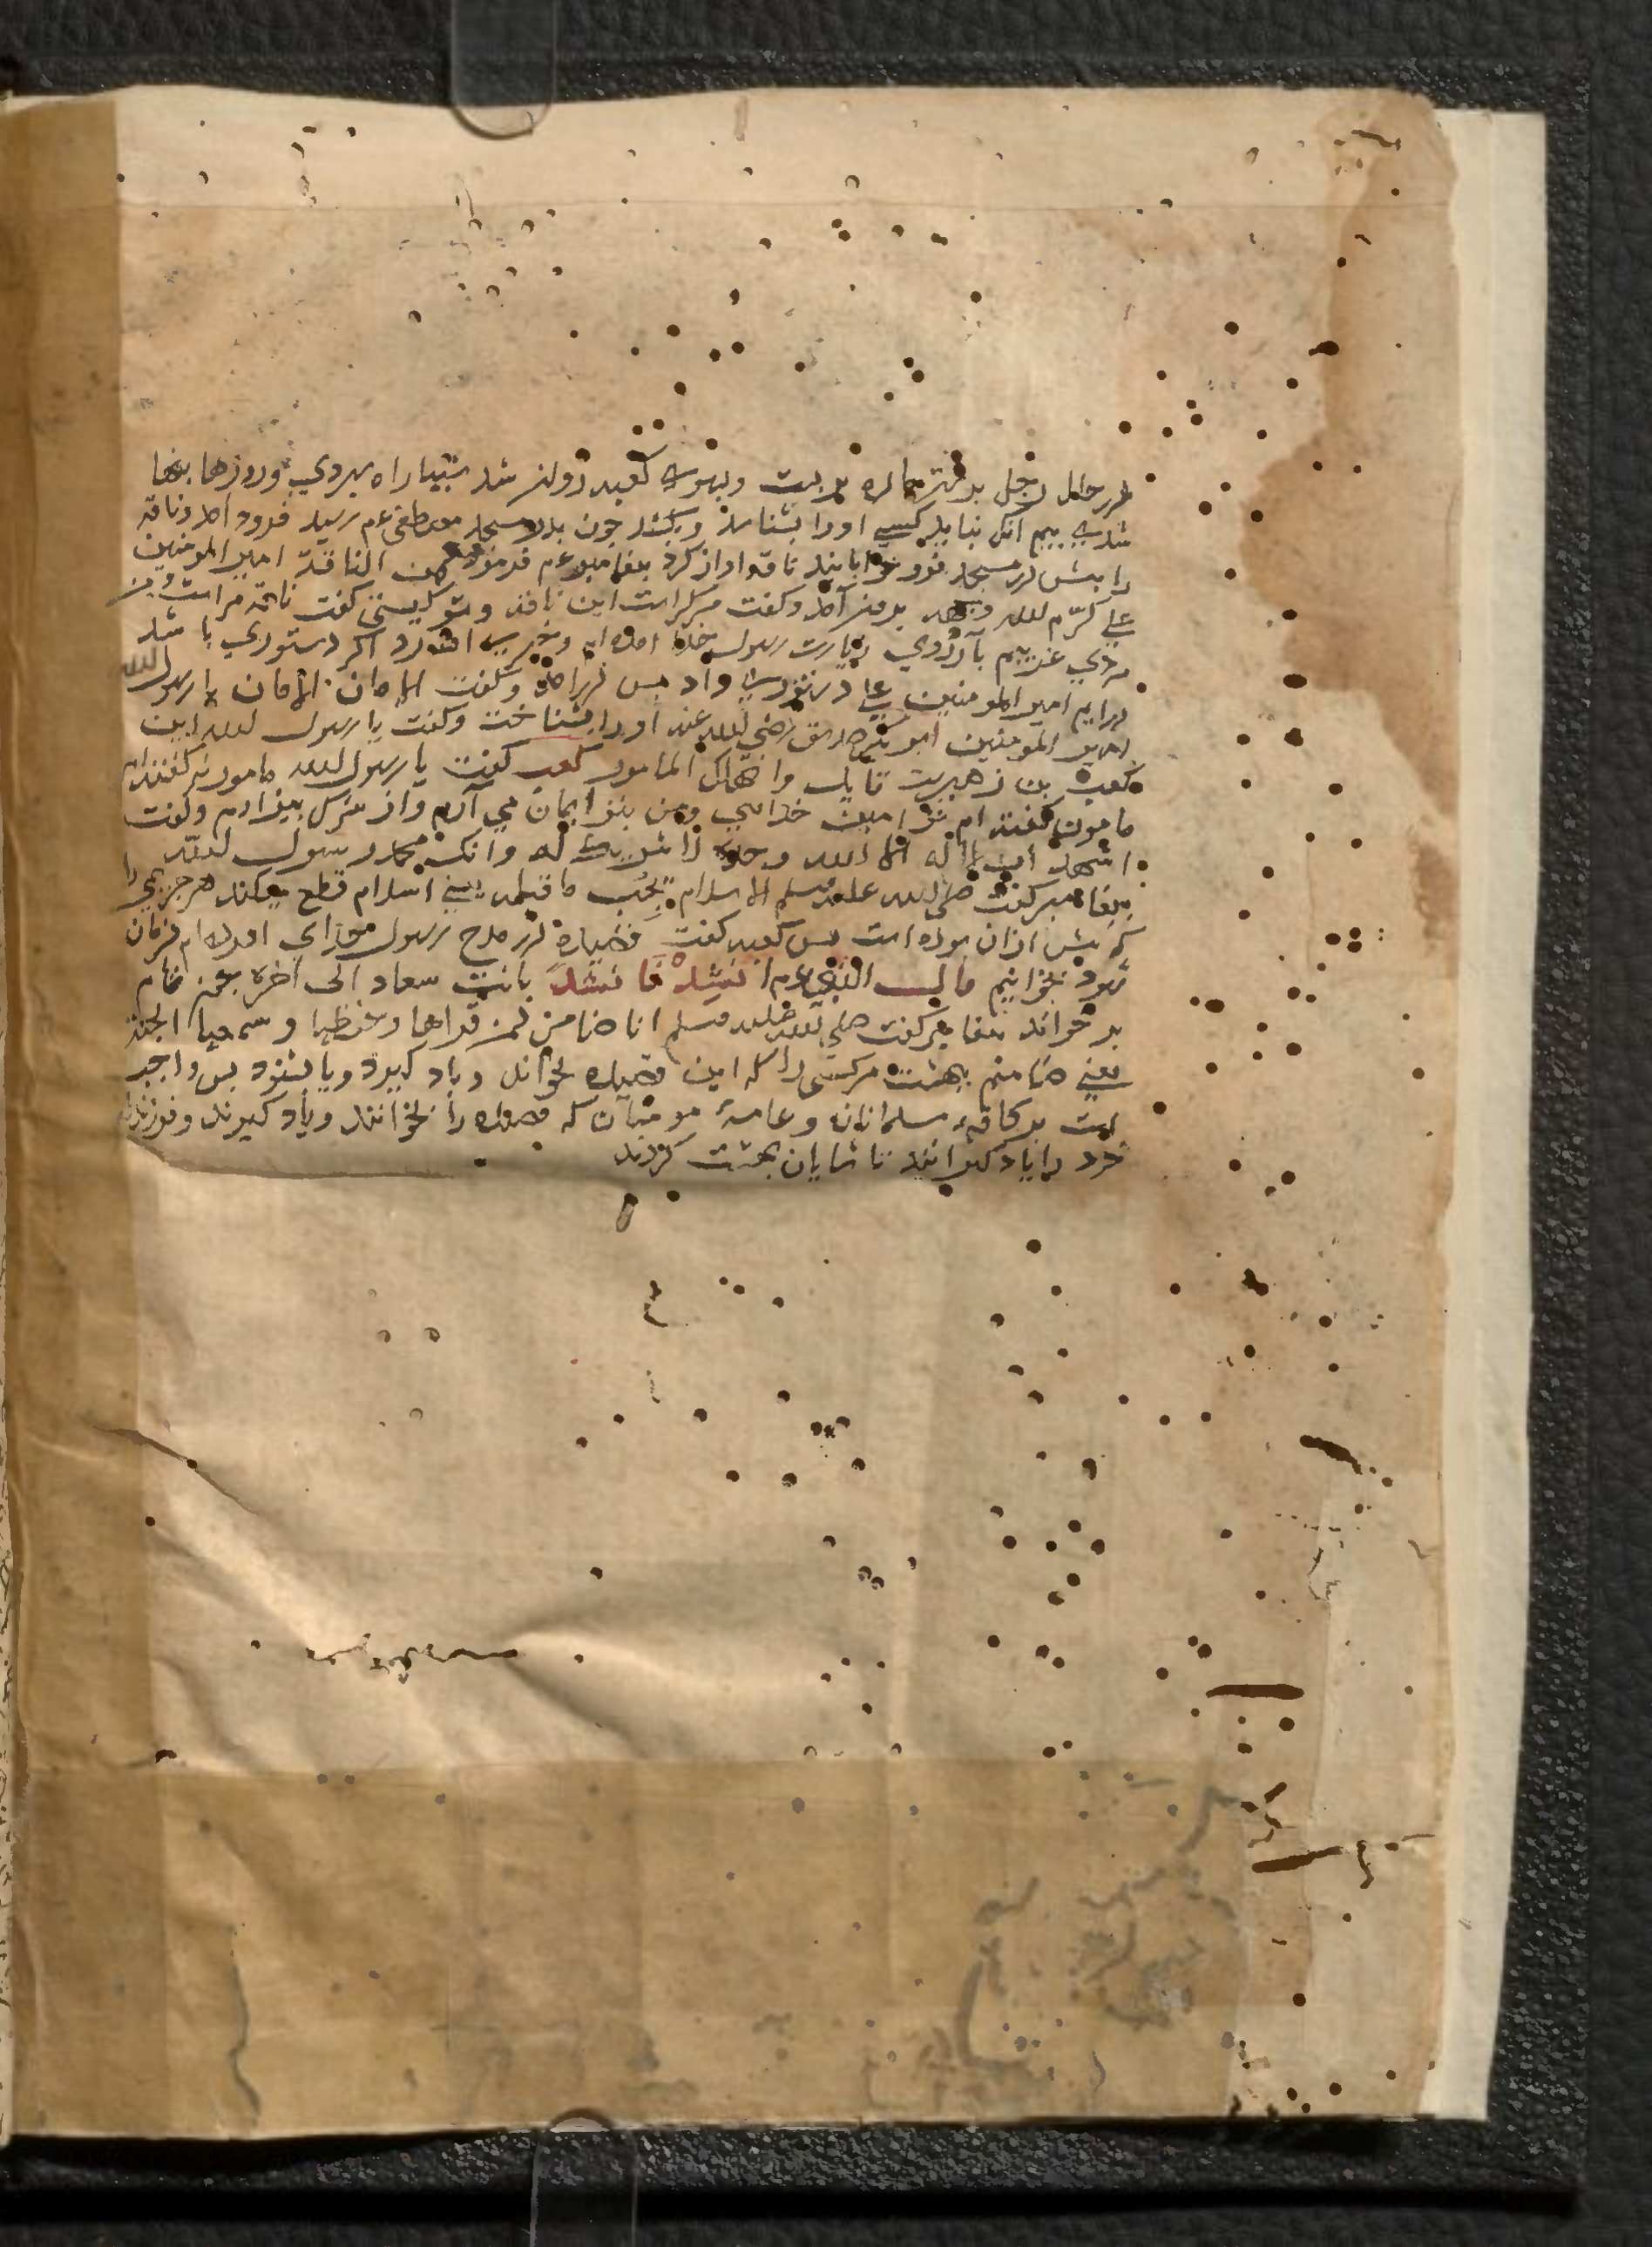 در حال رحل بر شتر جمازه بربست وبسوی کعبه روانه شد شبها راه میرفت وروزها بنها
شدی ببیم آنکه نباید کسی اورا بشناسد وبکشد جون بدر مسجد مصطفی عم رسید فرود آمد وناقه
را بیش در مسجد فرو خوابانید ناقه اواز کرد بیغامبر عم فرمود لمن الناقة امیر المومنین
علی کرّم الله وجهه بیرون آمد وکفت مرکراست این ناقه وتو کیستی کفت ناقه مراست ومن
مردی غریبم بآرزوی زیارت رسول خدا آمده ام اکر دستوری باشد
درایم امیر المومنین علی دستوری داد بس درآمد وکفت الامان الامان یا رسول الله
امیر المومنین ابو بکر صدیق رضی الله عنه اورا بشناخت وکفت یا رسول الله این
کعب بن زهیرست قایل وانهلک المامور کعب کفت یا رسول الله مامور نه کفته ام
مامون کفته ام تو امین خدایی ومن بتو ایمان می آرم واز شرک بیزارم وکفت
اشهد ان لا اله الا الله وحده لا شریک له وانک محمد رسول الله
بیغامبر کفت صلی الله علیه وسلم الاسلام یجُب ما قبله یعنی اسلام قطع میکند هر جیزی را
که بیش ازان بوده است بس کعب کفت قصیده در مدح رسول خدای آورده ام فرمان
شود بخوانیم قال النبی عم انشد فانشد بانت سعاد الی آخره بعجز تمام
بر خواند بیغامبر کفت صلی الله علیه وسلم انا ضامن لمن قراها وحفظها وسمعها الجنة
یعنی ضامنم بهشت مرکسی را که این قصیده بخواند ویاد کیرد ویا بشنود بس واجب
است بر کافهٔ مسلمانان وعامهٔ مومنان که قصیده را بخوانند ویاد کیرند وفرزندان
خود را یاد کیرانند تا شایان بهشت کردند